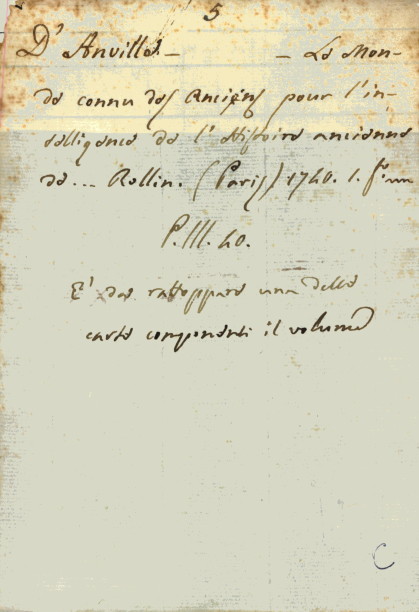 5
D' Anville. — — Le Mon-
de connu des Anciens pour l'in-
telligence de l'Histoire ancienne
de... Rollin. (Paris) 1740. 1.
P.III.40.
E' da rattoppare una delle
carte componenti il volume
C